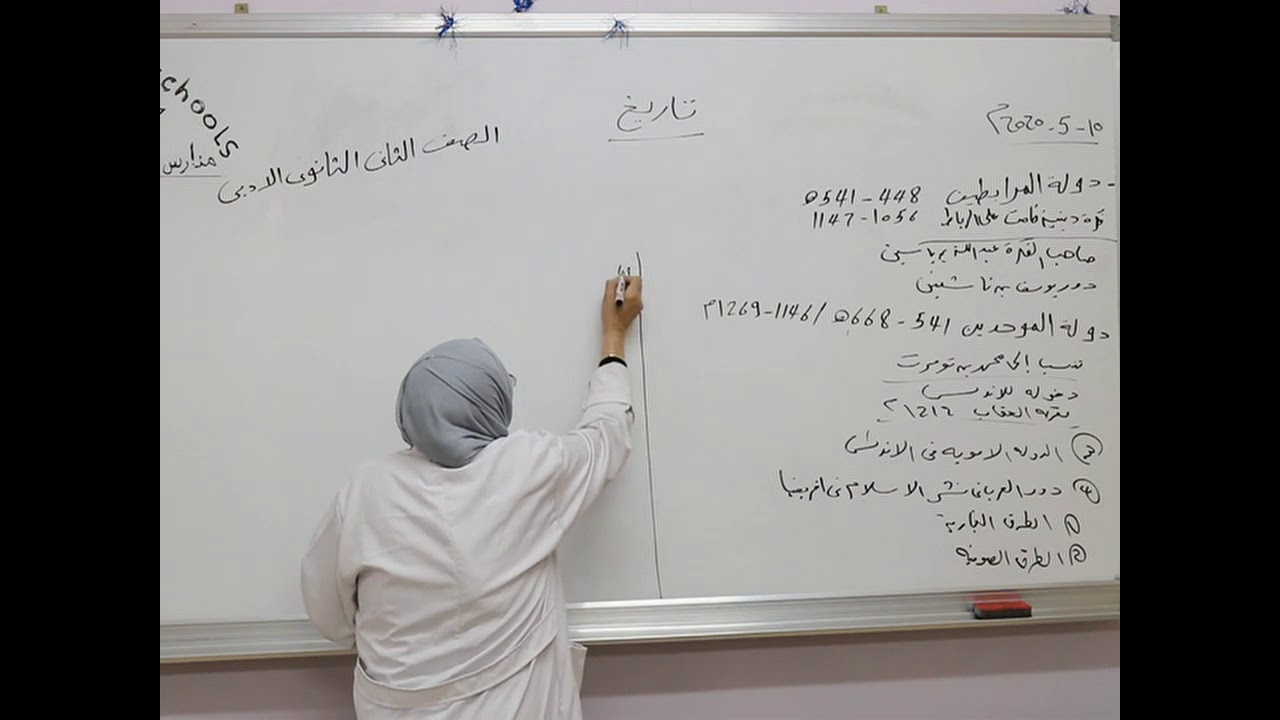 chools
مدارس
الصف الثاني الثانوي الادبي
تاريخ
10-5-2020م
- دولة المرابطين 448-541ه
فكرة دينية قامت على الرباط 1056-1147
صاحب الفكرة عبدالله بن ياسين
دور يوسف بن تاشفين
دولة الموحدين 541-668ه/1146-1269م
تنسب إلى محمد بن تومرت
دخوله للاندلس
معركة العقاب 1212م
③ الدولة الاموية في الاندلس
④ دور العرب في نشر الاسلام في افريقيا
① الطرق التجارية
② الطرق الصوفية